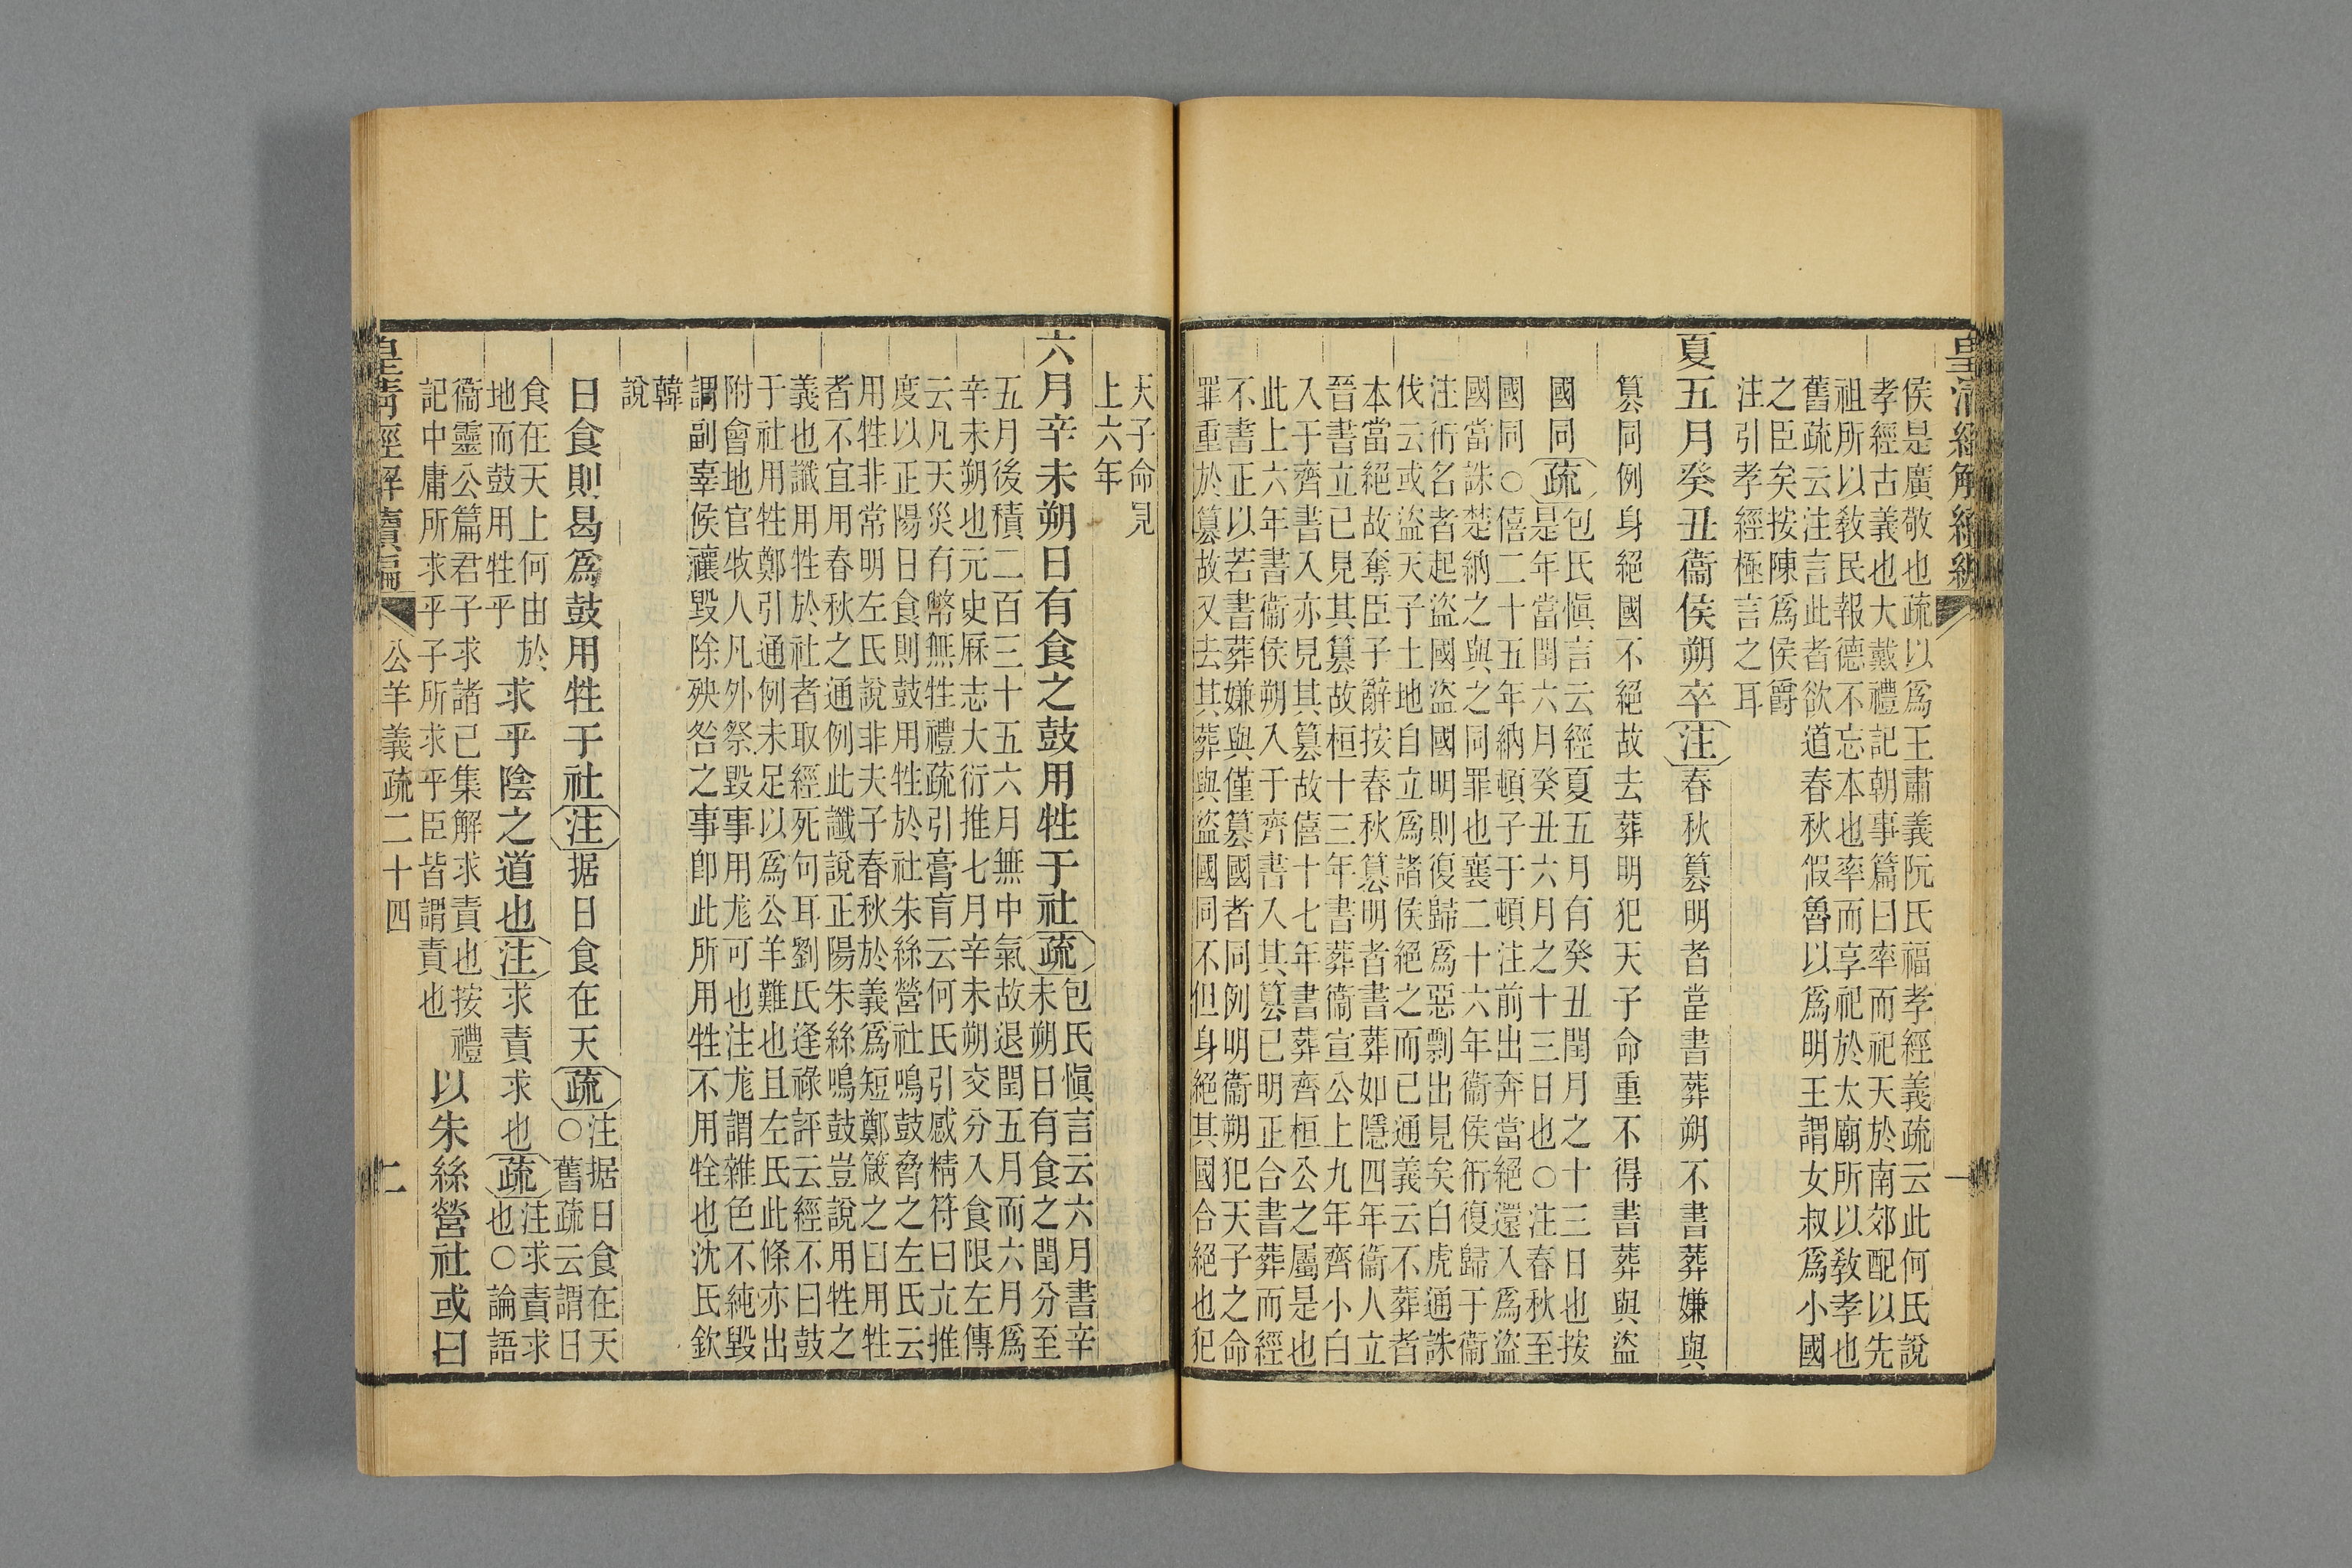 皇清經解續編
侯是廣敬也疏以爲王肅義阮氏福孝經義疏云此何氏說
孝經古義也大戴禮記朝事篇曰率而祀天於南郊配以先
祖所以敎民報德不忘本也率而享祀於太廟所以敎孝也
舊疏云注言此者欲道春秋假魯以爲明王謂女叔爲小國
之臣矣按陳爲侯爵
注引孝經極言之耳
夏五月癸丑衞侯朔卒注春秋篡明者當書葬朔不書葬嫌與
篡同例身絕國不絕故去葬明犯天子命重不得書葬與盜
國同疏包氏愼言云經夏五月有癸丑閏月之十三日也按
是年當閏六月癸丑六月之十三日也○注春秋至
國同○僖二十五年納頓子于頓注前出奔當絕還入爲盜
國當誅楚納之與之同罪也襄二十六年衞侯衎復歸于衞
注衎名者起盜國盜國明則復歸爲惡剽出見矣白虎通誅
伐云或盜天子土地自立爲諸侯絕之而已通義云不葬者
本當絕故奪臣子辭按春秋篡明者書葬如隱四年衞人立
晉書立已見其篡故桓十三年書葬衞宣公上九年齊小白
入于齊書入亦見其篡故僖十七年書葬齊桓公之屬是也
此上六年書衞侯朔入于齊書入其篡已明正合書葬而經
不書正以若書葬嫌與僅篡國者同例明衞朔犯天子之命
罪重於篡故又去其葬與盜國同不但身絕其國合絕也犯
天子命見
上六年
六月辛未朔日有食之鼓用牲于社疏包氏愼言云六月書辛
未朔日有食之閏分至
五月後積二百三十五六月無中氣故退閏五月而六月爲
辛未朔也元史厤志大衍推七月辛未朔交分入食限左傳
云凡天災有幣無牲禮疏引膏肓云何氏引感精符曰立推
度以正陽日食則鼓用牲於社朱絲營社鳴鼓脅之左氏云
用牲非常明左氏說非夫子春秋於義爲短鄭箴之曰用牲
者不宜用春秋之通例此讖說正陽朱絲鳴鼓豈說用牲之
義也讖用牲於社者取經死句耳劉氏逢祿評云經不曰鼓
于社用牲鄭引通例未足以爲公羊難也且左氏此條亦出
附會地官牧人凡外祭毀事用尨可也注尨謂雜色不純毀
謂副辜候禳毀除殃咎之事卽此所用牲不用牷也沈氏欽
韓
說
日食則曷爲鼓用牲于社注据日食在天疏注据日食在天
○舊疏云謂日
食在天上何由於
地而鼓用牲乎求乎陰之道也注求責求也疏注求責求
也○論語
衞靈公篇君子求諸已集解求責也按禮
記中庸所求乎子所求乎臣皆謂責也以朱絲營社或曰
皇淸經解續編
公羊義疏二十四
二